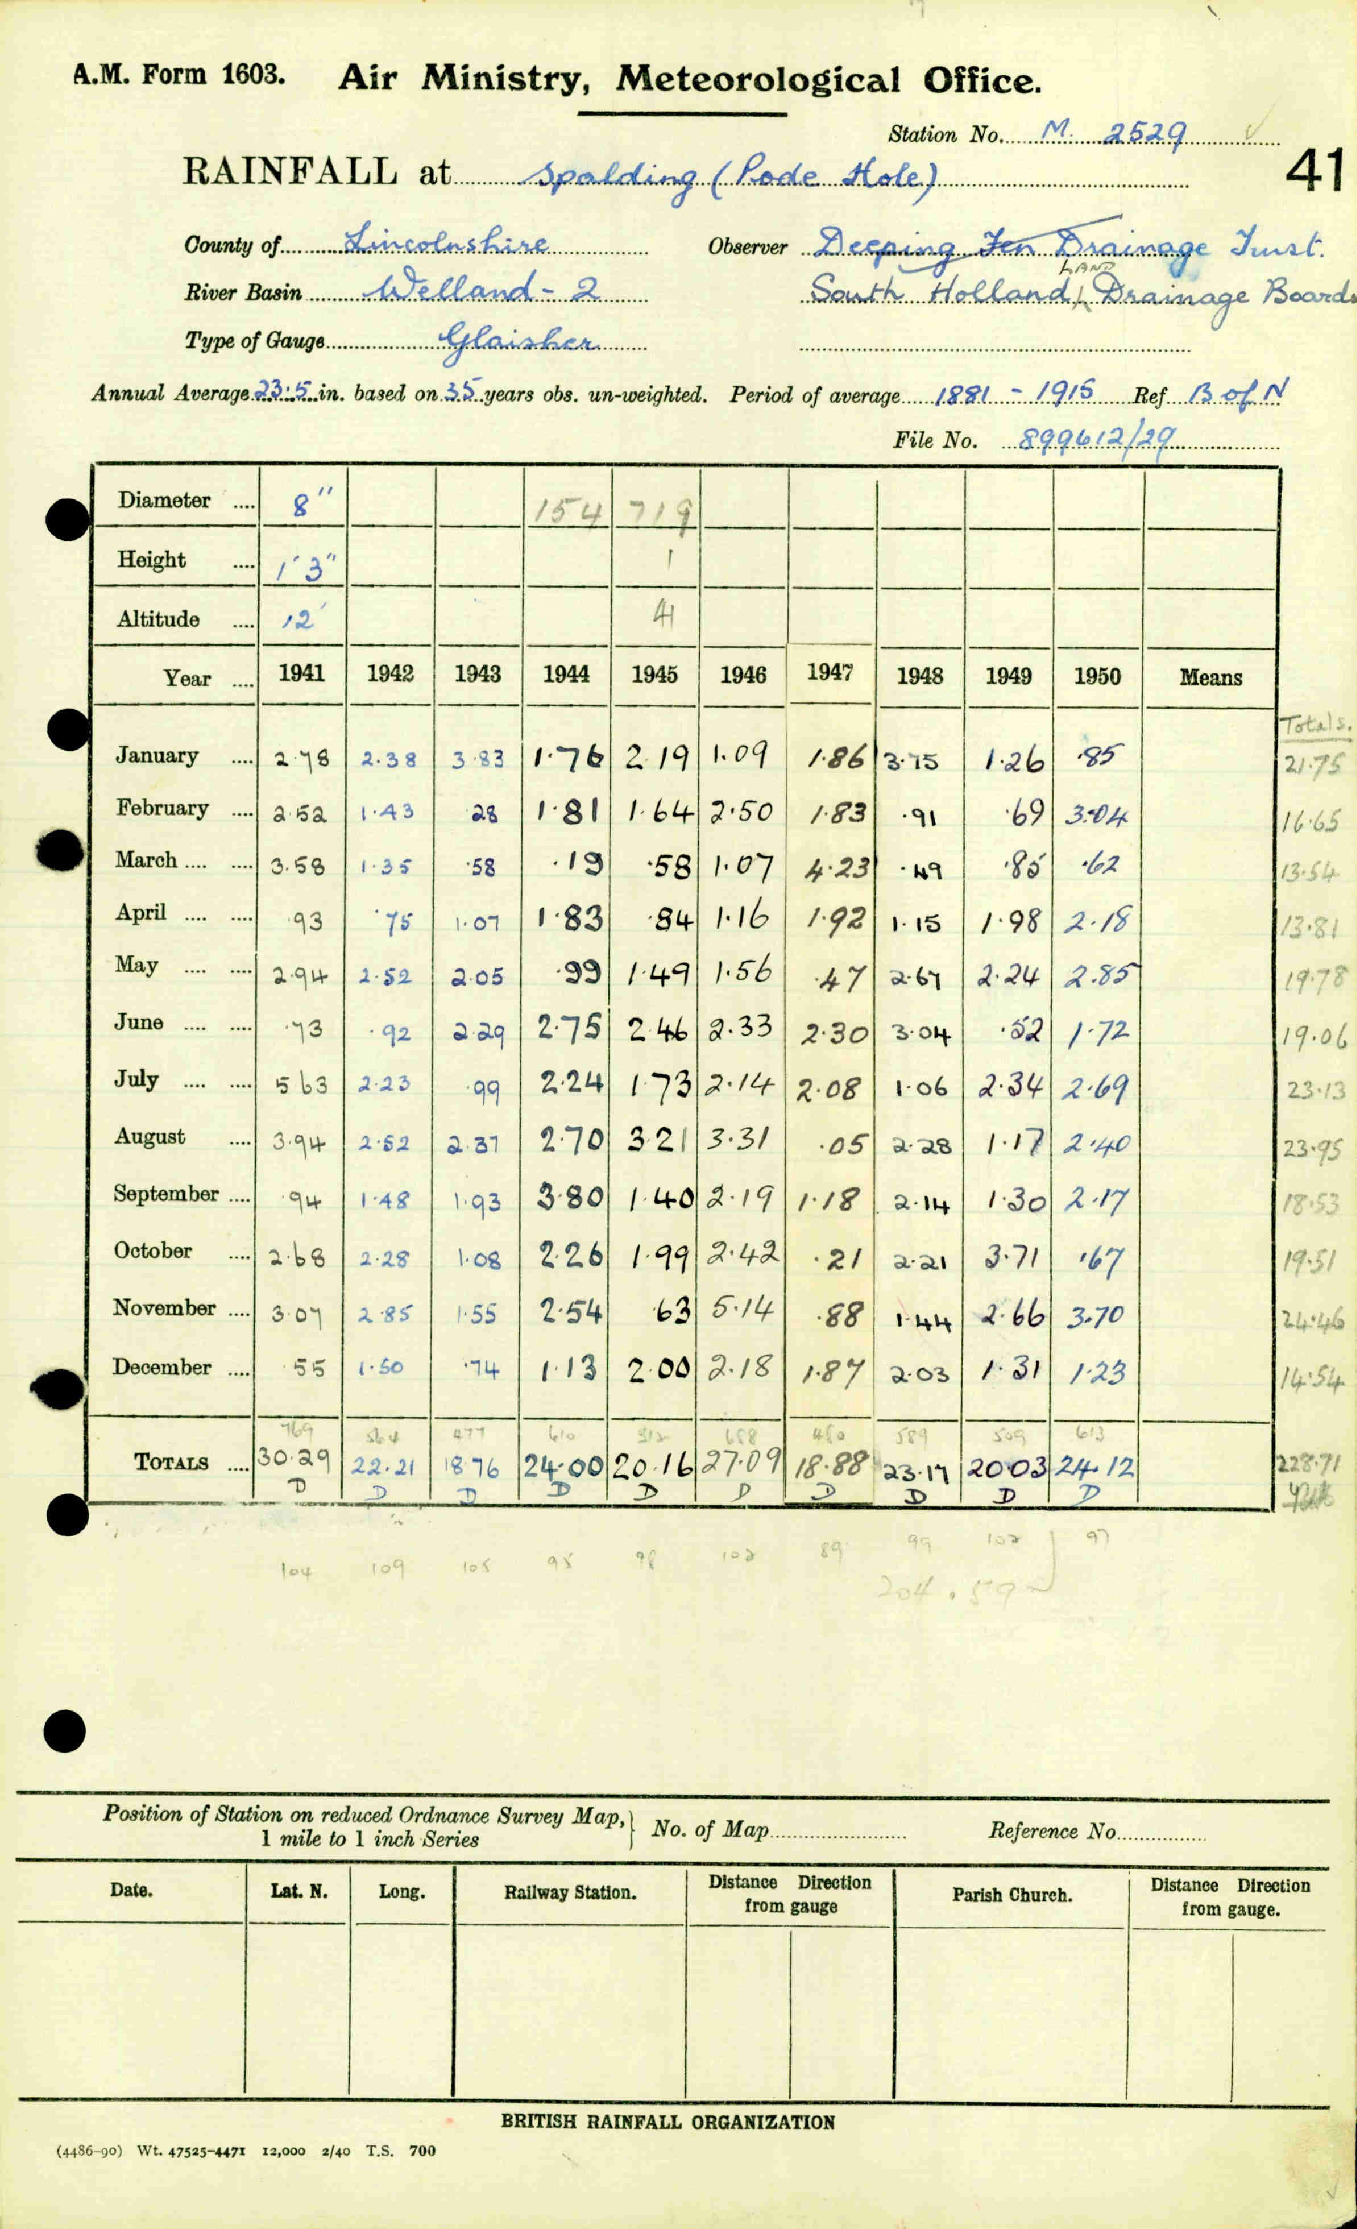 A.M. Form 1603. Air Ministry, Meteorological Office.
Station No. M. 2529
41
RAINFALL at Spalding (Pode Hole)
County of Lincolnshire Observer Deeping Fen Drainage Trust.
River Basin Welland - 2 South Holland LAND Drainage Boards
Type of Gauge Glaisher
Annual Average 23.5 in. based on 35 years obs. un-weighted. Period of average 1881 - 1915 Ref B of N
File No. 899612/29
Diameter .... 8" 154 719
Height .... 1'3" 1
Altitude .... 12' 41
Year .... 1941 1942 1943 1944 1945 1946 1947 1948 1949 1950 Means
Totals.
January .... 2.78 2.38 3.83 1.76 2.19 1.09 1.86 3.75 1.26 .85 21.75
February .... 2.52 1.43 .28 1.81 1.64 2.50 1.83 .91 .69 3.04 16.65
March .... .... 3.58 1.35 .58 .19 .58 1.07 4.23 .49 .85 .62 13.54
April .... .... .93 .75 1.07 1.83 .84 1.16 1.92 1.15 1.98 2.18 13.81
May .... .... 2.94 2.52 2.05 .99 1.49 1.56 .47 2.67 2.24 2.85 19.78
June .... .... .73 .92 2.29 2.75 2.46 2.33 2.30 3.04 .52 1.72 19.06
July .... .... 5.63 2.23 .99 2.24 1.73 2.14 2.08 1.06 2.34 2.69 23.13
August .... 3.94 2.52 2.37 2.70 3.21 3.31 .05 2.28 1.17 2.40 23.95
September .... .94 1.48 1.93 3.80 1.40 2.19 1.18 2.14 1.30 2.17 18.53
October .... 2.68 2.28 1.08 2.26 1.99 2.42 .21 2.21 3.71 .67 19.51
November .... 3.07 2.85 1.55 2.54 .63 5.14 .88 1.44 2.66 3.70 24.46
December .... .55 1.50 .74 1.13 2.00 2.18 1.87 2.03 1.31 1.23 14.54
769 564 477 610 512 688 480 589 509 613
TOTALS .... 30.29 22.21 18.76 24.00 20.16 27.09 18.88 23.17 20.03 24.12 228.71
D D D D D D D D D D
104 109 105 95 98 102 89 99 102 97
204.59
Position of Station on reduced Ordnance Survey Map, 1 mile to 1 inch Series } No. of Map Reference No.
Date. Lat. N. Long. Railway Station. Distance Direction from gauge Parish Church. Distance Direction from gauge.
BRITISH RAINFALL ORGANIZATION
(4486-90) Wt. 47525-4471 12,000 2/40 T.S. 700